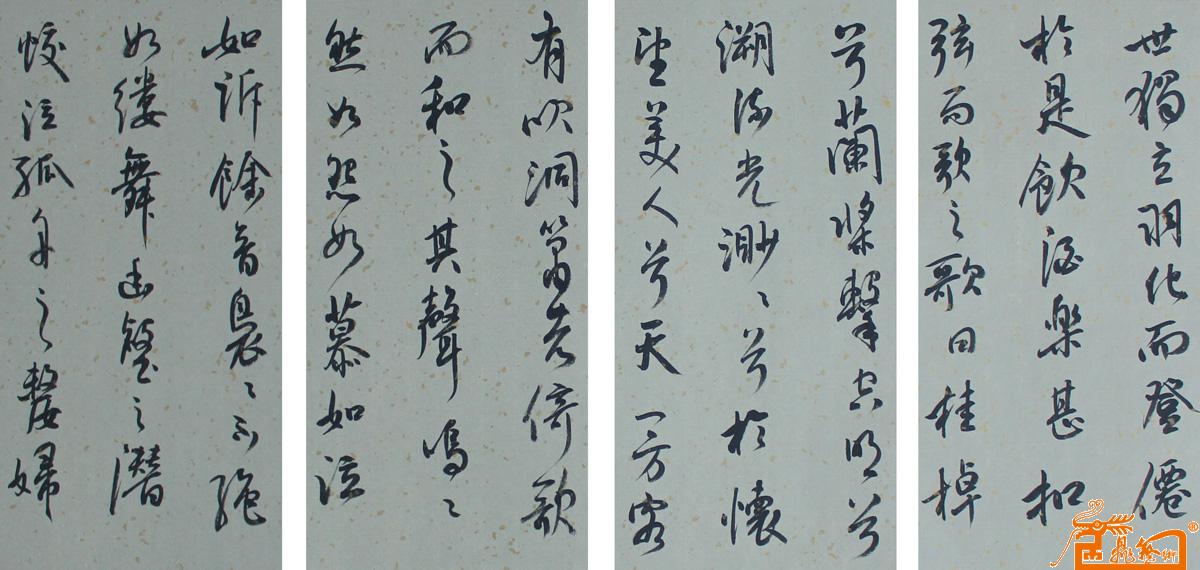 世獨立羽化而登僊
於是飲酒樂甚扣
弦而歌之歌曰桂棹
兮蘭槳擊空明兮
溯流光渺〻兮於懷
望美人兮天一方客
有吹洞簫者倚歌
而和之其聲嗚〻
然如怨如慕如泣
如訴餘音裊〻不絕
如縷舞幽壑之潛
蛟泣孤舟之嫠婦